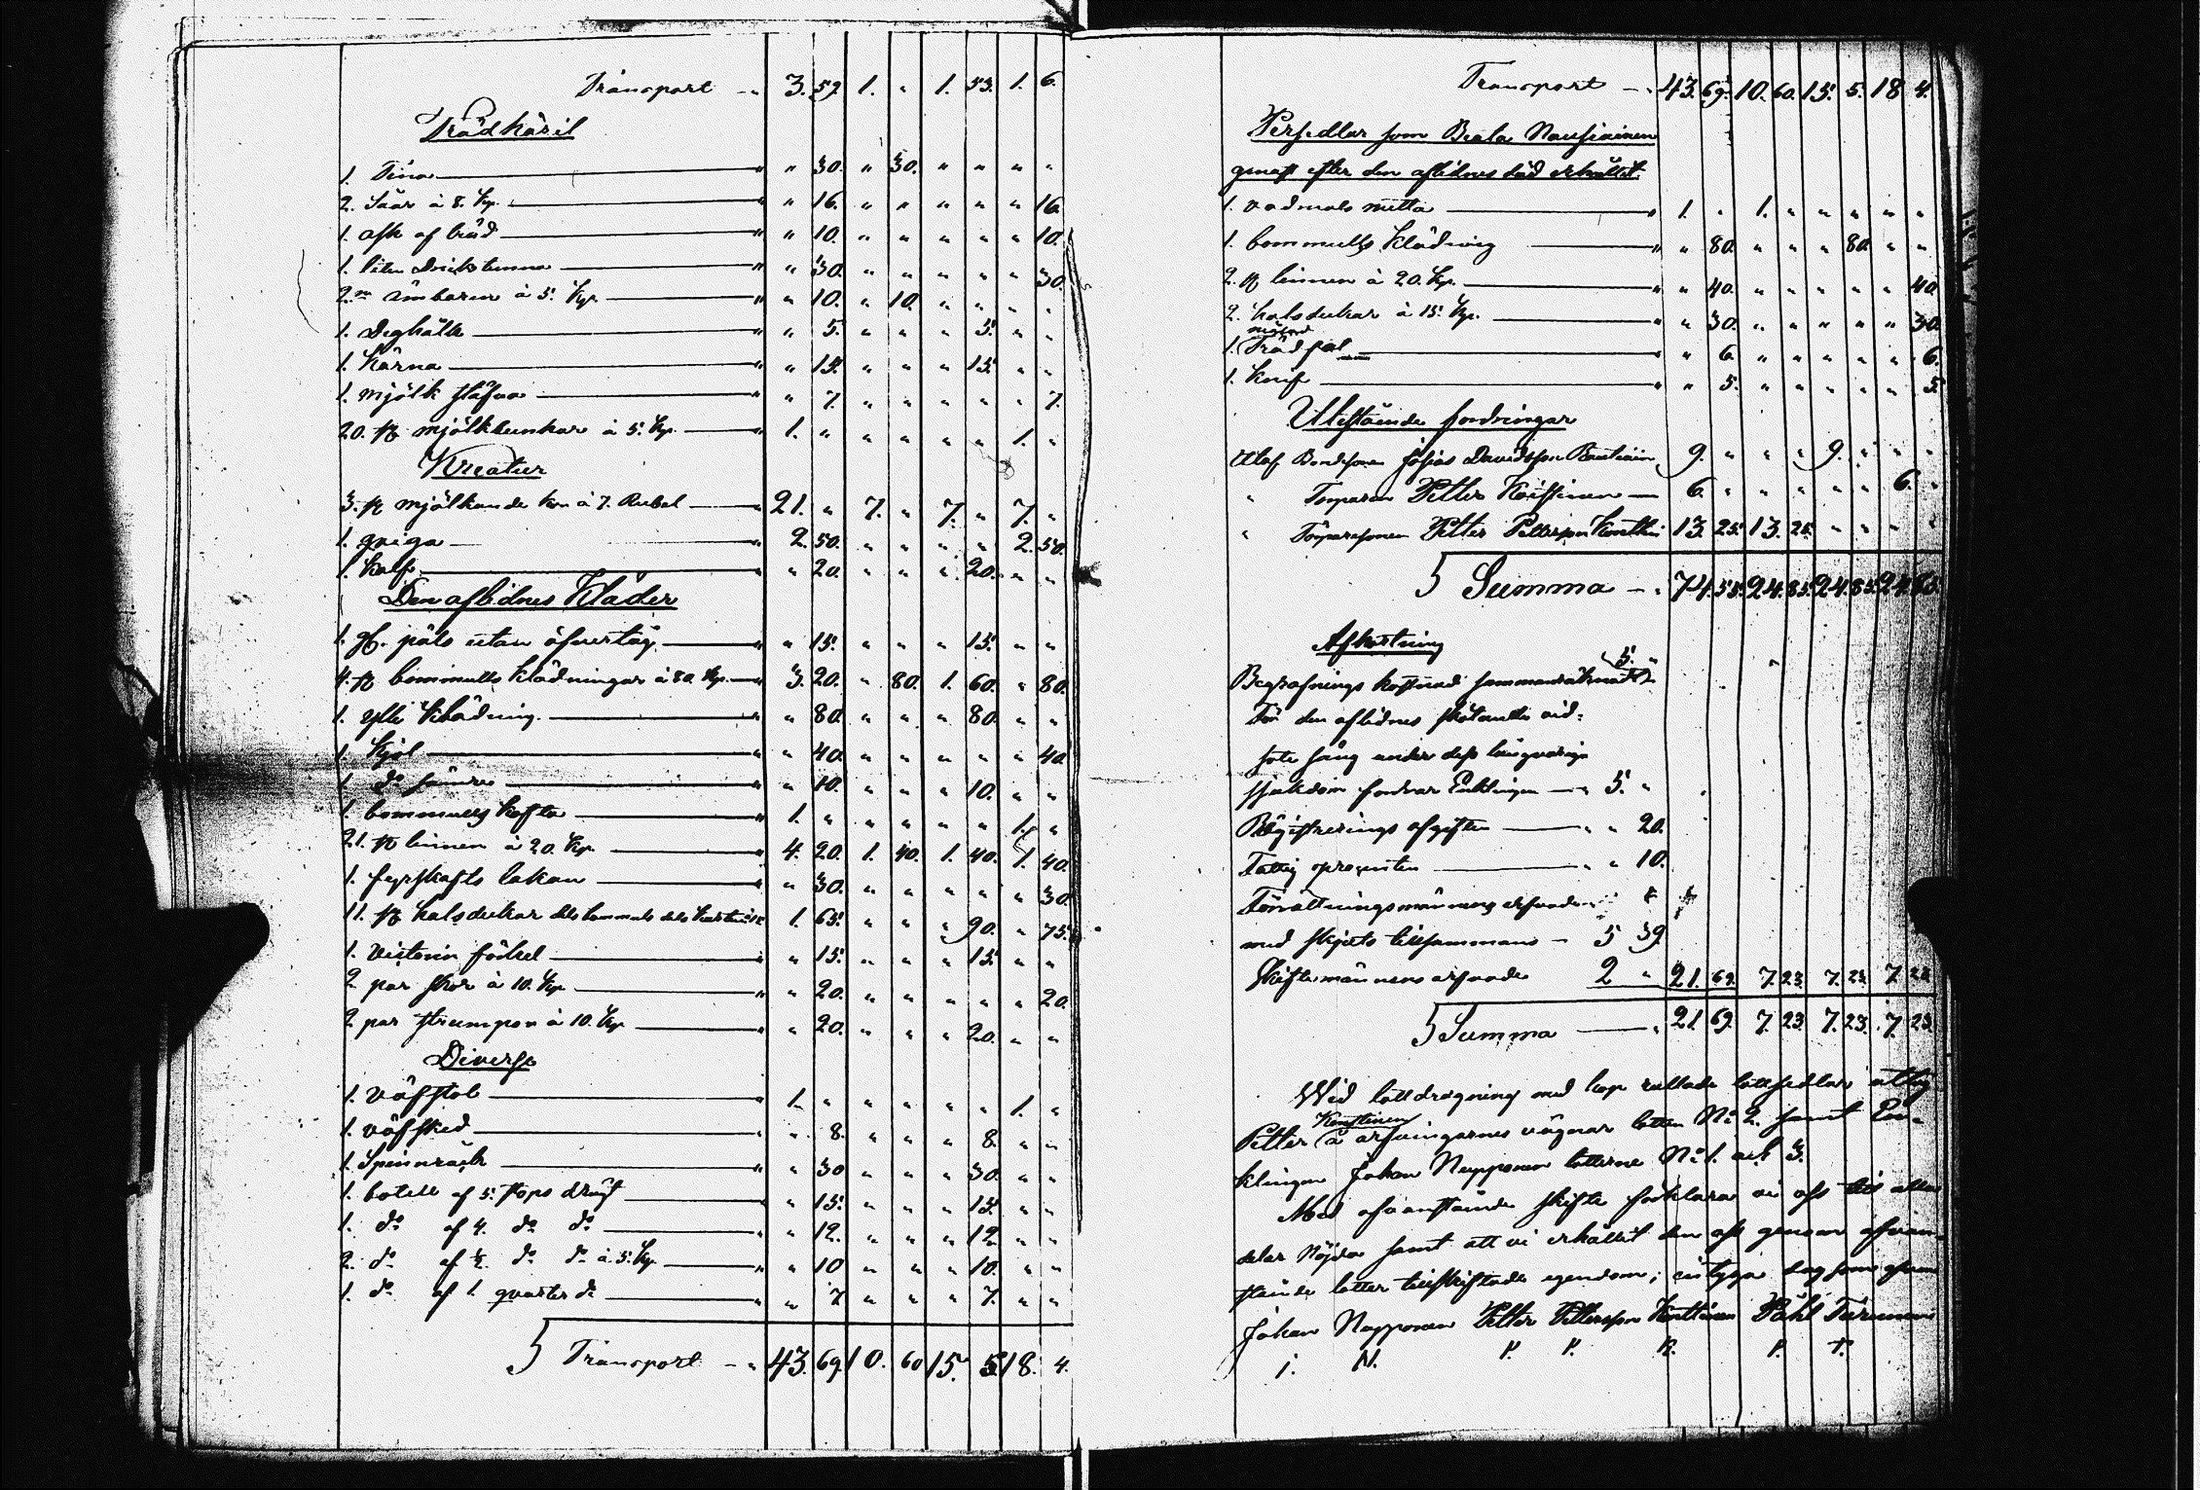 Transport — „ 3. 59. 1. „ 1. 53. 1. 6.
Trädkäril
1. Tina — „ „ 30. „ 30. „ „ „ „
2. Såar à 8. Kp. — „ „ 16. „ „ „ „ „ 16.
1. ask af träd — „ „ 10. „ „ „ „ „ 10.
1. liten Drickstunna — „ „ 30. „ „ „ „ „ 30.
2.ne ämbaren à 5. Kp. — „ „ 10. „ 10. „ „ „ „
1. Deghåll — „ „ 5. „ „ „ 5. „ „
1. Kärna — „ „ 15. „ „ „ 15. „ „
1. mjölk stäfva — „ „ 7. „ „ „ „ „ 7.
20. st mjölkbunkar à 5. Kp. — 1. „ „ „ „ „ 1. „
Kreatur
3. st mjölkande kor à 7. Rubel — 21. „ 7. „ 7. „ 7. „
1. qviga — „ 2. 50. „ „ „ „ 2. 50.
1. Kalf — „ „ 20. „ „ „ 20. „ „
Den aflidnes Kläder
1. gl. päls utan öfvertåg — „ „ 15. „ „ „ 15. „ „
4. st bommulls klädningar à 80. Kp. — „ 3. 20. „ 80. 1. 60. „ 80.
1. ylle klädning — „ „ 80. „ „ „ 80. „ „
1. Kjol — „ „ 40. „ „ „ „ „ 40.
1. do sämre — „ „ 10. „ „ „ 10. „ „
1. bommulls kofta — „ 1. „ „ „ „ „ 1. „
21. st linnen à 20. Kp. — 4. 20. 1. 40. 1. 40. 1. 40.
1. fyrskafts lakan — „ „ 30. „ „ „ „ „ 30.
11. st halsdukar dels bommuls dels 1. 65. „ „ „ 90. „ 75.
1. — „ „ 15. „ „ „ 15. „ „
2 par skor à 10. Kp. — „ „ 20. „ „ „ „ „ 20.
2 par strumpor à 10. Kp. — „ „ 20. „ „ „ 20. „ „
Diverse
1. väfstol — 1. „ „ „ „ „ 1. „
1. väfsked — „ „ 8. „ „ „ 8. „ „
1. Spinnråck — „ „ 30 „ „ „ 30. „ „
1. botell af 5. stops drygt — „ „ 15. „ „ „ 15. „ „
1. do af 4. do do — „ „ 12. „ „ „ 12. „ „
2. do af ½ do do à 5. Kp. — „ „ 10 „ „ „ 10. „ „
1. do af 1. quarter do — „ „ 7. „ „ „ 7. „ „
Transport — „ 43. 69. 10. 60 15. 5. 18. 4.
Transport — „ 43. 69. 10. 60. 15. 5. 18 4.
Persedlar som Beata Nausiainen
genast efter den aflidnes död erhållit.
1. vadmals mutta — „ 1. „ 1. „ „ „ „ „
1. bommulls klädning — „ „ 80. „ „ „ 80. „ „
2. st linnen à 20. Kp. — „ „ 40. „ „ „ „ „ 40.
2. halsdukar à 15. Kp. — „ „ 30. „ „ „ „ „ 30.
1. Träd fat — „ „ 6. „ „ „ „ „ 6.
1. Knif — „ „ 5. „ „ „ „ „ 5.
Utestående fordringar
Utaf Bondesonen Josias Davidsson 9. „ „ „ 9. „ „ „
„ Torparen Petter — 6. „ „ „ „ „ 6. „
„ Torparesonen Petter Pettersson Konttinen 13. 25. 13. 25. „ „ „ „
Summa — „ 74. 55. 24. 85. 24. 85. 24. 85.
Afkortning
Begrafnings kostnad sammanräknadt 5. „
För den aflidnes skötande vid
sote säng under dess långvariga
sjukdom fordrar Enklingen — „ 5. „
Registrerings afgiften — „ „ 20.
Fattig procenten — „ „ 10.
Förrättningsmännens arfvode
med skjuts tillsammans — 5 39
Skiftesmännens arfvode 2 „ 21. 69. 7. 23. 7. 23. 7 23
Summa — „ 21. 69. 7. 23. 7. 23. 7. 23.
Wid lottdragning med hop rullade lottsedlar
Petter Konttinen å arfvingarnes vägnar lotten No 2. samt En-
klingen Johan Nupponen lotterne No 1. och 3.
Med ofvanstående skifte förklara vi oss till alla
delar nöjda samt att vi erhållit den oss genom ofvan-
stående lotter tillskiftade egendom; intyga
Johan Nupponen Petter Pettersson Konttinen Påhl Turunen
J. N. P. P. K. P. T.